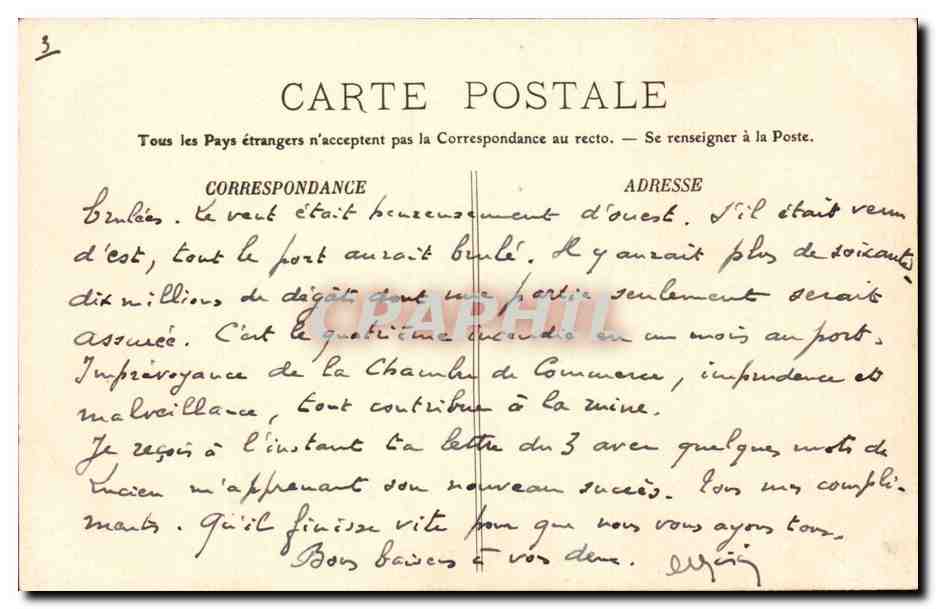 3
CARTE POSTALE
Tous les Pays étrangers n'acceptent pas la Correspondance au recto. — Se renseigner à la Poste.
CORRESPONDANCE
ADRESSE
brulées. Le vent était heureusement d'ouest. S'il était venu
d'est, tout le port aurait brulé. Il y aurait plus de soixante
dix millions de dégâts dont une partie seulement serait
assurée. C'est le quatrième incendie en un mois au port.
Imprévoyance de la Chambre de Commerce, imprudence et
malveillance, tout contribue à la ruine.
Je reçois à l'instant ta lettre du 3 avec quelques mots de
Lucien m'apprenant son nouveau succès. Tous mes compli-
ments. Qu'il finisse vite pour que nous vous ayons tous.
Bons baisers à vos deux.
CRAPHIL